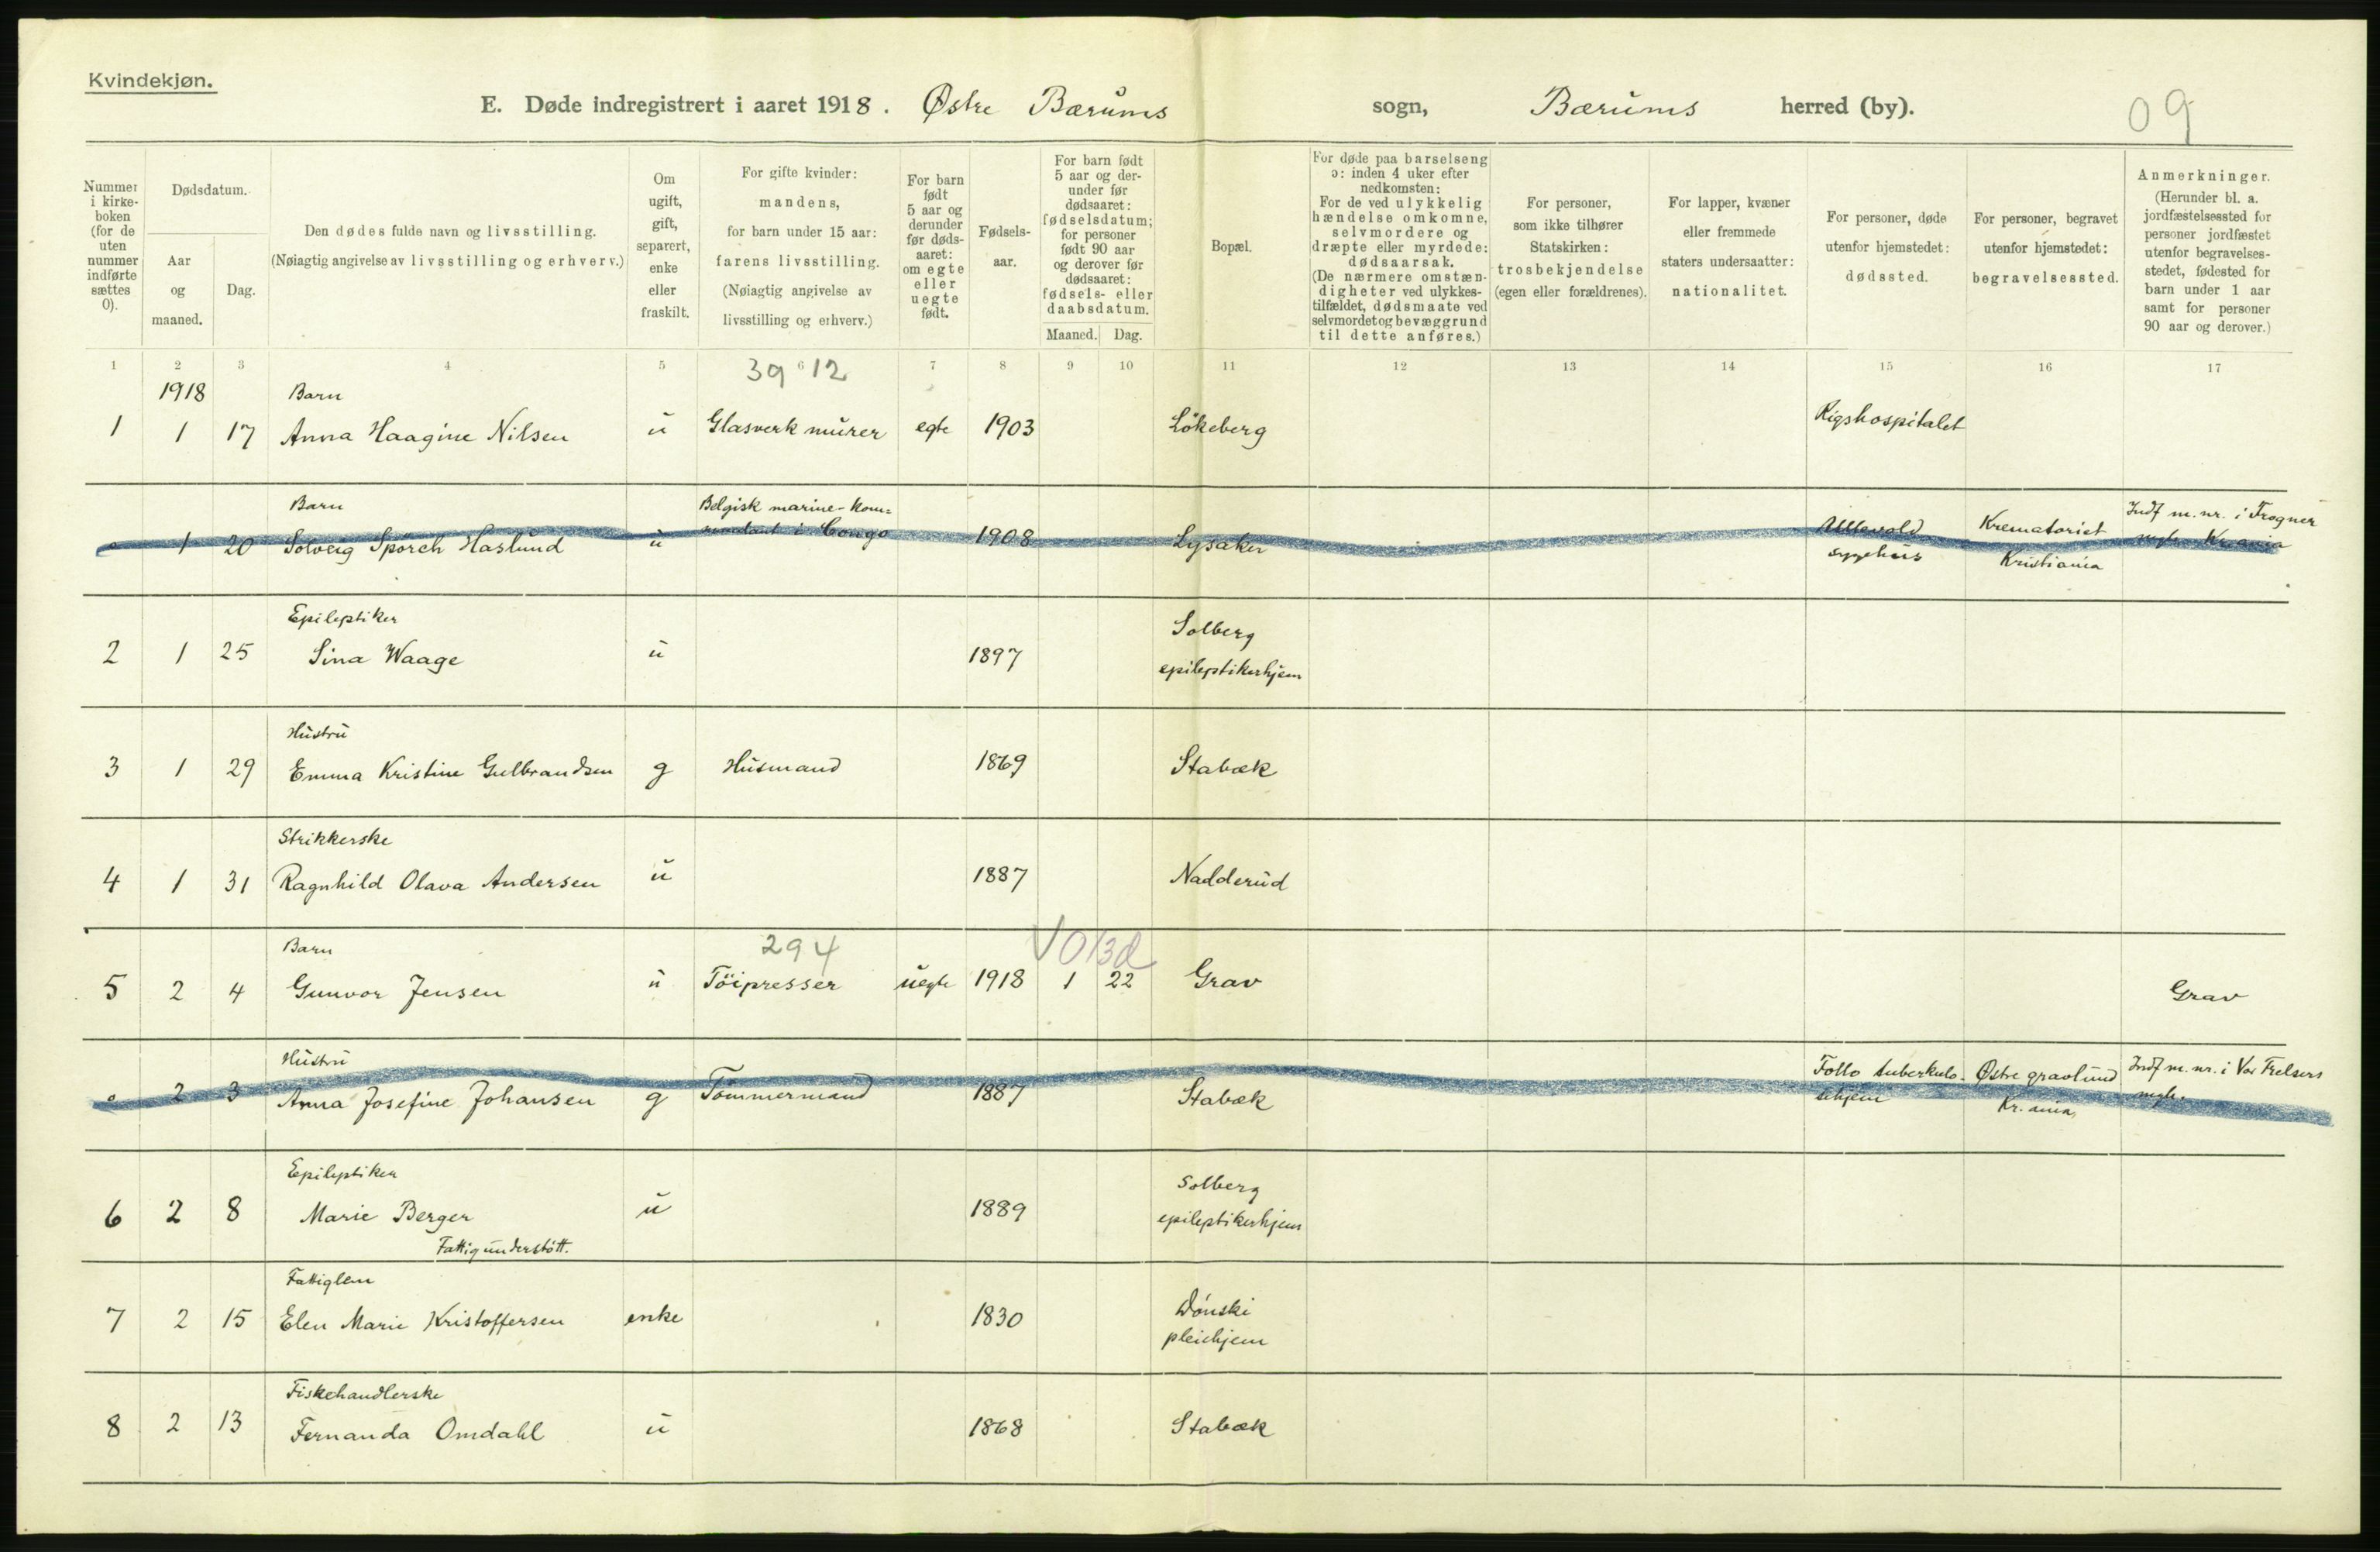 Kvindekjøn.
E. Døde indregistrert i aaret 1918. Østre Bærums sogn, Bærums herred (by). 09
Nummer i kirkeboken (for de uten nummer indførte sættes 0).
Dødsdatum.
Aar og maaned.
Dag.
Den dødes fulde navn og livsstilling.
(Nøiagtig angivelse av livsstilling og erhverv.)
Om ugift, gift, separert, enke eller fraskilt.
For gifte kvinder: mandens, for barn under 15 aar: farens livsstilling.
(Nøiagtig angivelse av livsstilling og erhverv.)
For barn født 5 aar og derunder før dødsaaret: om egte eller uegte født.
Fødselsaar.
For barn født 5 aar og derunder før dødsaaret: fødselsdatum; for personer født 90 aar og derover før dødsaaret: fødsels- eller daabsdatum.
Maaned. Dag.
Bopæl.
For døde paa barselseng ɔ: inden 4 uker efter nedkomsten:
For de ved ulykkelig hændelse omkomne, selvmordere og dræpte eller myrdede: dødsaarsak.
(De nærmere omstændigheter ved ulykkestilfældet, dødsmaate ved selvmordet og bevæggrund til dette anføres.)
For personer, som ikke tilhører Statskirken: trosbekjendelse (egen eller forældrenes).
For lapper, kvæner eller fremmede staters undersaatter: nationalitet.
For personer, døde utenfor hjemstedet: dødssted.
For personer, begravet utenfor hjemstedet: begravelsessted.
Anmerkninger.
(Herunder bl. a. jordfæstelsessted for personer jordfæstet utenfor begravelsesstedet, fødested for barn under 1 aar samt for personer 90 aar og derover.)
1 2 3 4 5 6 7 8 9 10 11 12 13 14 15 16 17
39 12
1918 Barn
1 1 17 Anna Haagine Nilsen u Glasverk murer egte 1903 Lökeberg Rigshospitalet
Barn Belgisk marine-kom= Indf m. nr. i Frogner
0 1 20 Solveig Spörch Haslund u mandant i Congo 1908 Lysaker Ullevold Krematoriet mgh. Kr.ania
sygehus Kristiania
Epileptiker Solberg
2 1 25 Sina Waage u 1897 epileptikerhjem
Hustru
3 1 29 Emma Kristine Gulbrandsen g Husmand 1869 Stabæk
Strikkerske
4 1 31 Ragnhild Olava Andersen u 1887 Nadderud
Barn 294
5 2 4 Gunvor Jensen u Töipresser uegte 1918 1 22 Grav Grav
Hustru Follo tuberkulo- Østre gravlund Indf m. nr. i Vor Frelsers
0 2 3 Anna Josefine Johansen g Tömmermand 1887 Stabæk sehjem Kr.ania mgh.
Epileptiker Solberg
6 2 8 Marie Berger u 1889 epileptikerhjem
Fattigunderstött.
Fattiglem Dönski
7 2 15 Elen Marie Kristoffersen enke 1830 pleiehjem
Fiskehandlerske
8 2 13 Fernanda Omdahl u 1868 Stabæk